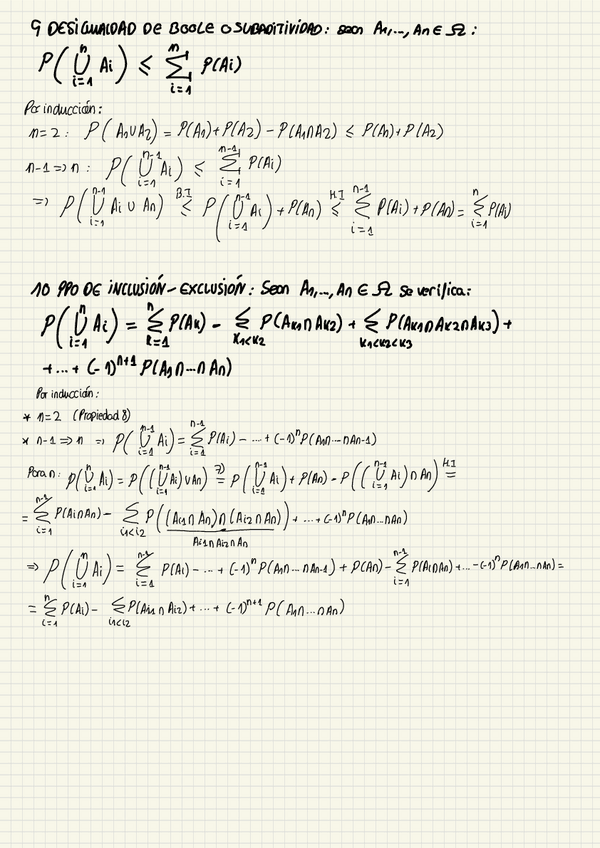 9 DESIGUALDAD DE BOOLE O SUBADITIVIDAD: sean A₁,..., An ∈ Ω :
P( ⋃_{i=1}^{n} Ai ) ≤ ∑_{i=1}^{n} P(Ai)
Por inducción:
n=2 : P( A₁∪A₂) = P(A₁)+P(A₂) - P(A₁∩A₂) ≤ P(A₁)+P(A₂)
n-1 => n : P( ⋃_{i=1}^{n-1} Ai ) ≤ ∑_{i=1}^{n-1} P(Ai)
=> P( ⋃_{i=1}^{n-1} Ai ∪ An ) ≤^{B.I} P( ⋃_{i=1}^{n-1} Ai ) + P(An) ≤^{H.I} ∑_{i=1}^{n-1} P(Ai) + P(An) = ∑_{i=1}^{n} P(Ai)
10 PPO DE INCLUSIÓN-EXCLUSIÓN: Sean A₁,..., An ∈ Ω se verifica:
P( ⋃_{i=1}^{n} Ai ) = ∑_{k=1}^{n} P(Ak) - ∑_{k1<k2} P(Ak1∩Ak2) + ∑_{k1<k2<k3} P(Ak1∩Ak2∩Ak3) +
+...+ (-1)^{n+1} P(A₁∩...∩An)
Por inducción:
* n=2 (Propiedad 8)
* n-1 => n => P( ⋃_{i=1}^{n-1} Ai ) = ∑_{i=1}^{n-1} P(Ai) - ... + (-1)^n P(A₁∩...∩An-1)
Para n: P( ⋃_{i=1}^{n} Ai ) = P( ( ⋃_{i=1}^{n-1} Ai ) ∪ An ) =^{7)} P( ⋃_{i=1}^{n-1} Ai ) + P(An) - P( ( ⋃_{i=1}^{n-1} Ai ) ∩ An ) =^{H.I}
= ∑_{i=1}^{n-1} P(Ai∩An) - ∑_{i1<i2} P( (Ai1∩An)∩(Ai2∩An) ) + ...+ (-1)^n P(A₁∩...∩An)
Ai1∩Ai2∩An
=> P( ⋃_{i=1}^{n} Ai ) = ∑_{i=1}^{n-1} P(Ai) - ... + (-1)^n P(A₁∩...∩An-1) + P(An) - ∑_{i=1}^{n-1} P(Ai∩An) + ... -(-1)^n P(A₁∩...∩An) =
= ∑_{i=1}^{n} P(Ai) - ∑_{i1<i2} P(Ai1∩Ai2) + ... + (-1)^{n+1} P(A₁∩...∩An)